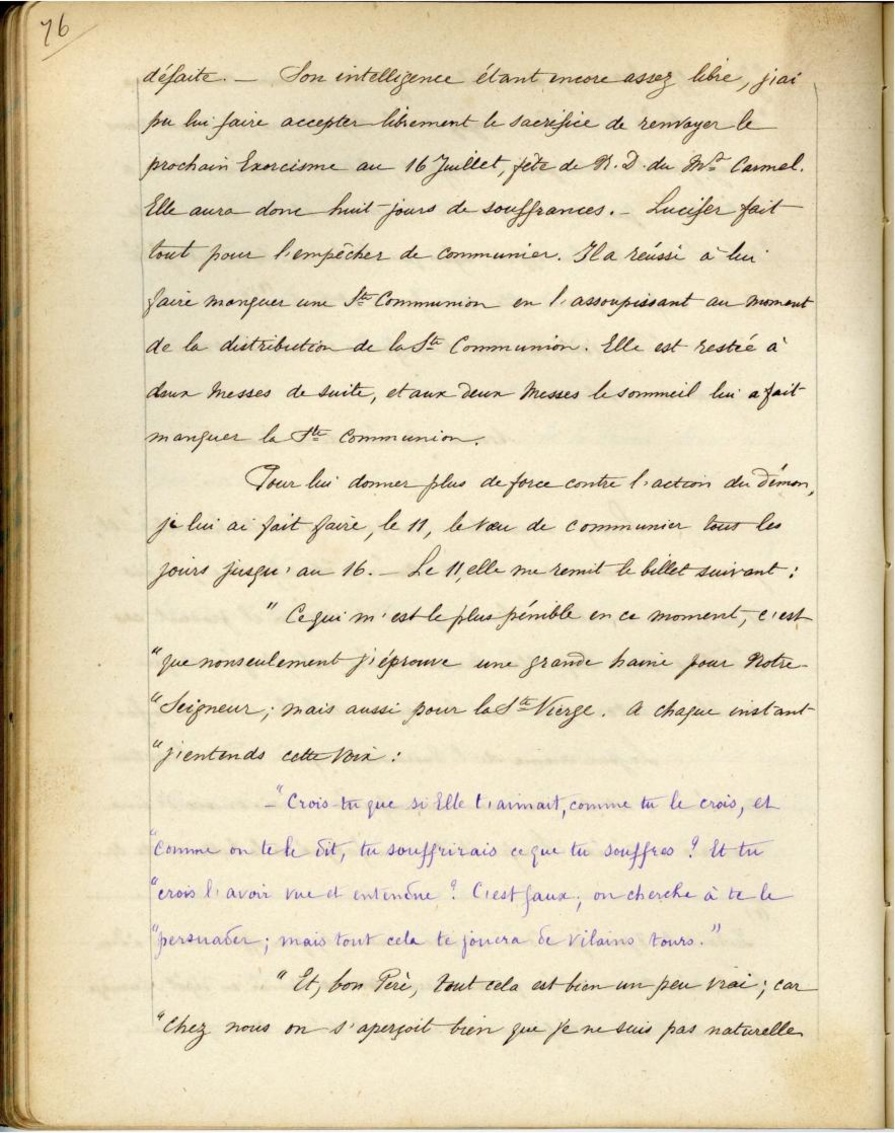 76
défaite. — Son intelligence étant encore assez libre, j'ai
pu lui faire accepter librement le sacrifice de renvoyer le
prochain Exorcisme au 16 Juillet, fête de N. D. du Mt Carmel.
Elle aura donc huit jours de souffrances. — Lucifer fait
tout pour l'empêcher de communier. Il a réussi à lui
faire manquer une Ste Communion en l'assoupissant au moment
de la distribution de la Ste Communion. Elle est restée à
deux Messes de suite, et aux deux Messes le sommeil lui a fait
manquer la Ste Communion.
Pour lui donner plus de force contre l'action du démon,
je lui ai fait faire, le 11, le vœu de communier tous les
jours jusqu'au 16. — Le 11, elle me remit le billet suivant :
" Ce qui m'est le plus pénible en ce moment, c'est
" que nonseulement j'éprouve une grande haine pour Notre-
" Seigneur ; mais aussi pour la Ste Vierge. A chaque instant
" j'entends cette voix :
— " Crois-tu que si Elle t'aimait, comme tu le crois, et
" comme on te le dit, tu souffrirais ce que tu souffres ? Et tu
" crois l'avoir vue et entendue ? C'est faux ; on cherche à te le
" persuader ; mais tout cela te jouera de vilains tours. "
" Et, bon Père, tout cela est bien un peu vrai ; car
" chez nous on s'aperçoit bien que je ne suis pas naturelle